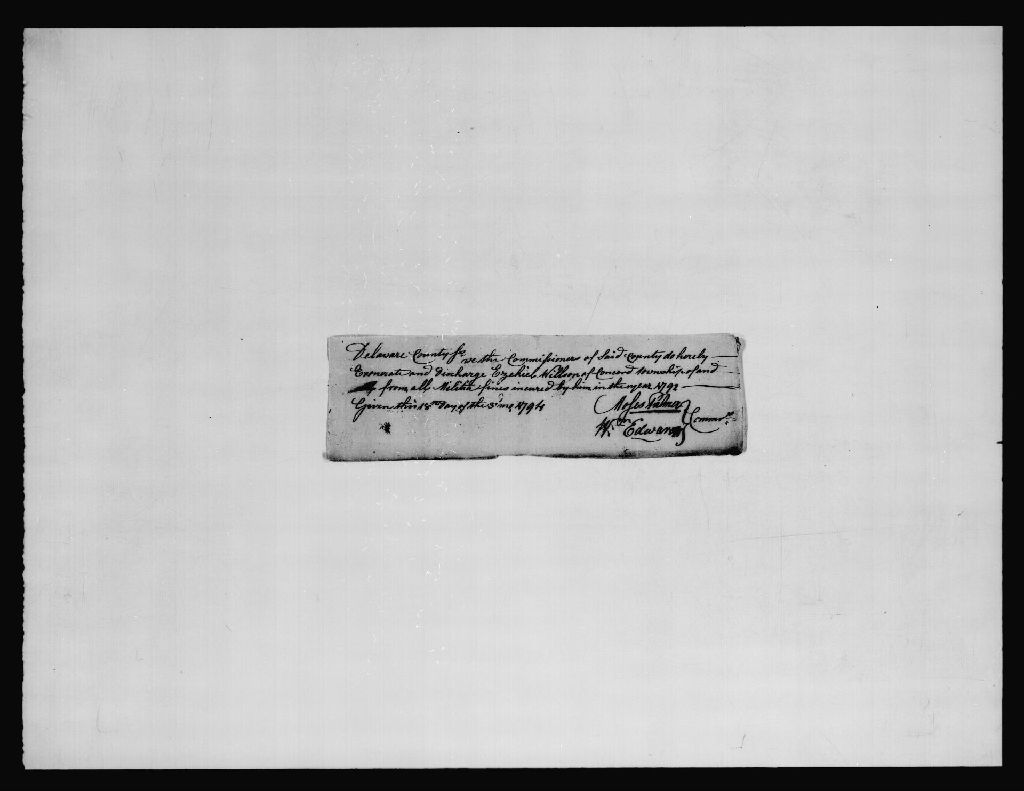 Delaware County ss We the Commissioners of said County do hereby
Exonerate and Discharge Ezekiel Willson of Concord Township of and
from all Melitia fines incured by him in the year 1792
Given this 13th Day of the 3d mo 1794
Moses Palmer
Wm Edwards
Commrs